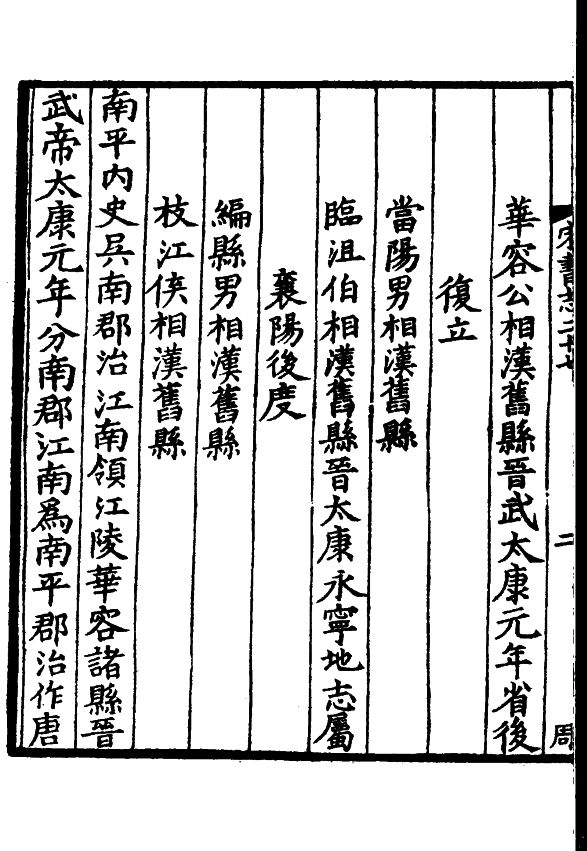 宋書志二十七
二
周
華容公相漢舊縣晉武太康元年省後
復立
當陽男相漢舊縣
臨沮伯相漢舊縣晉太康永寧地志屬
襄陽後度
編縣男相漢舊縣
枝江侯相漢舊縣
南平內史吳南郡治江南領江陵華容諸縣晉
武帝太康元年分南郡江南爲南平郡治作唐